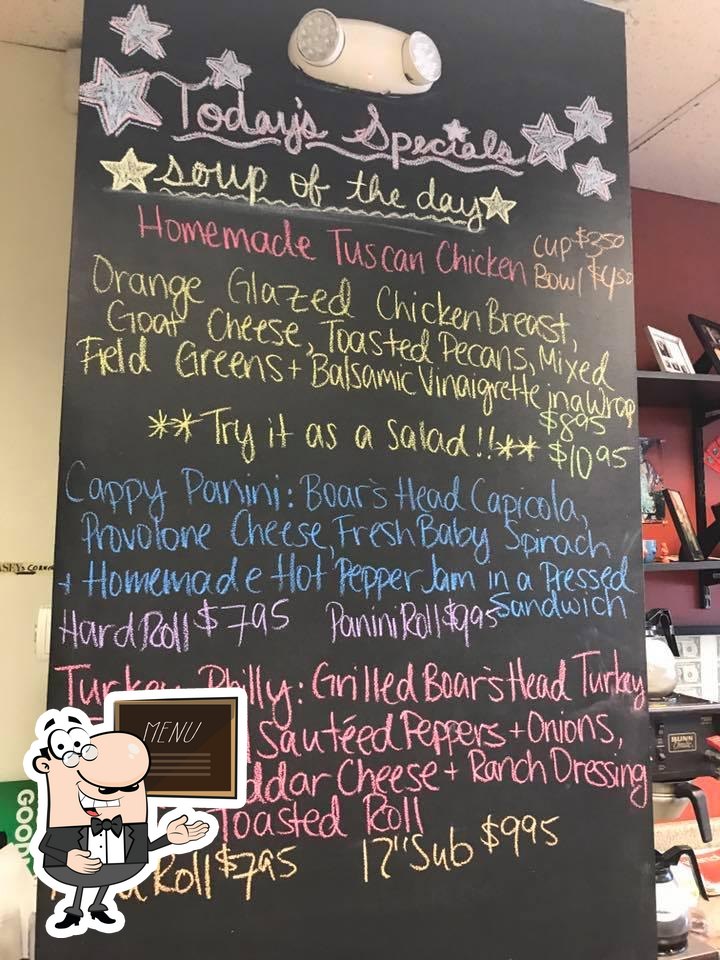 Today's Specials
soup of the day
Homemade Tuscan Chicken cup $3.50
Bowl $4.50
Orange Glazed Chicken Breast,
Goat Cheese, Toasted Pecans, Mixed
Field Greens + Balsamic Vinaigrette in a Wrap
$8.95
**Try it as a salad!!** $10.95
Cappy Panini: Boar's Head Capicola,
Provolone Cheese, Fresh Baby Spinach
+ Homemade Hot Pepper Jam in a Pressed
Sandwich
Hard Roll $7.95 Panini Roll $9.95
Turkey Philly: Grilled Boar's Head Turkey
Sautéed Peppers + Onions,
Cheese + Ranch Dressing
Toasted Roll
Roll $7.95 12" Sub $9.95
MENU
BUNN